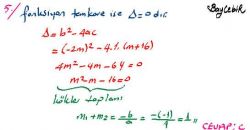 5/ fonksiyon temkare ise Δ=0 dır.
Böylebik
Δ = b² - 4ac
= (-2m)² - 4.1.(m+16)
4m² - 4m - 64 = 0
m² - m - 16 = 0
kökler toplamı
m₁ + m₂ = -b/a = -(-1)/1 = 1 //
CEVAP: C